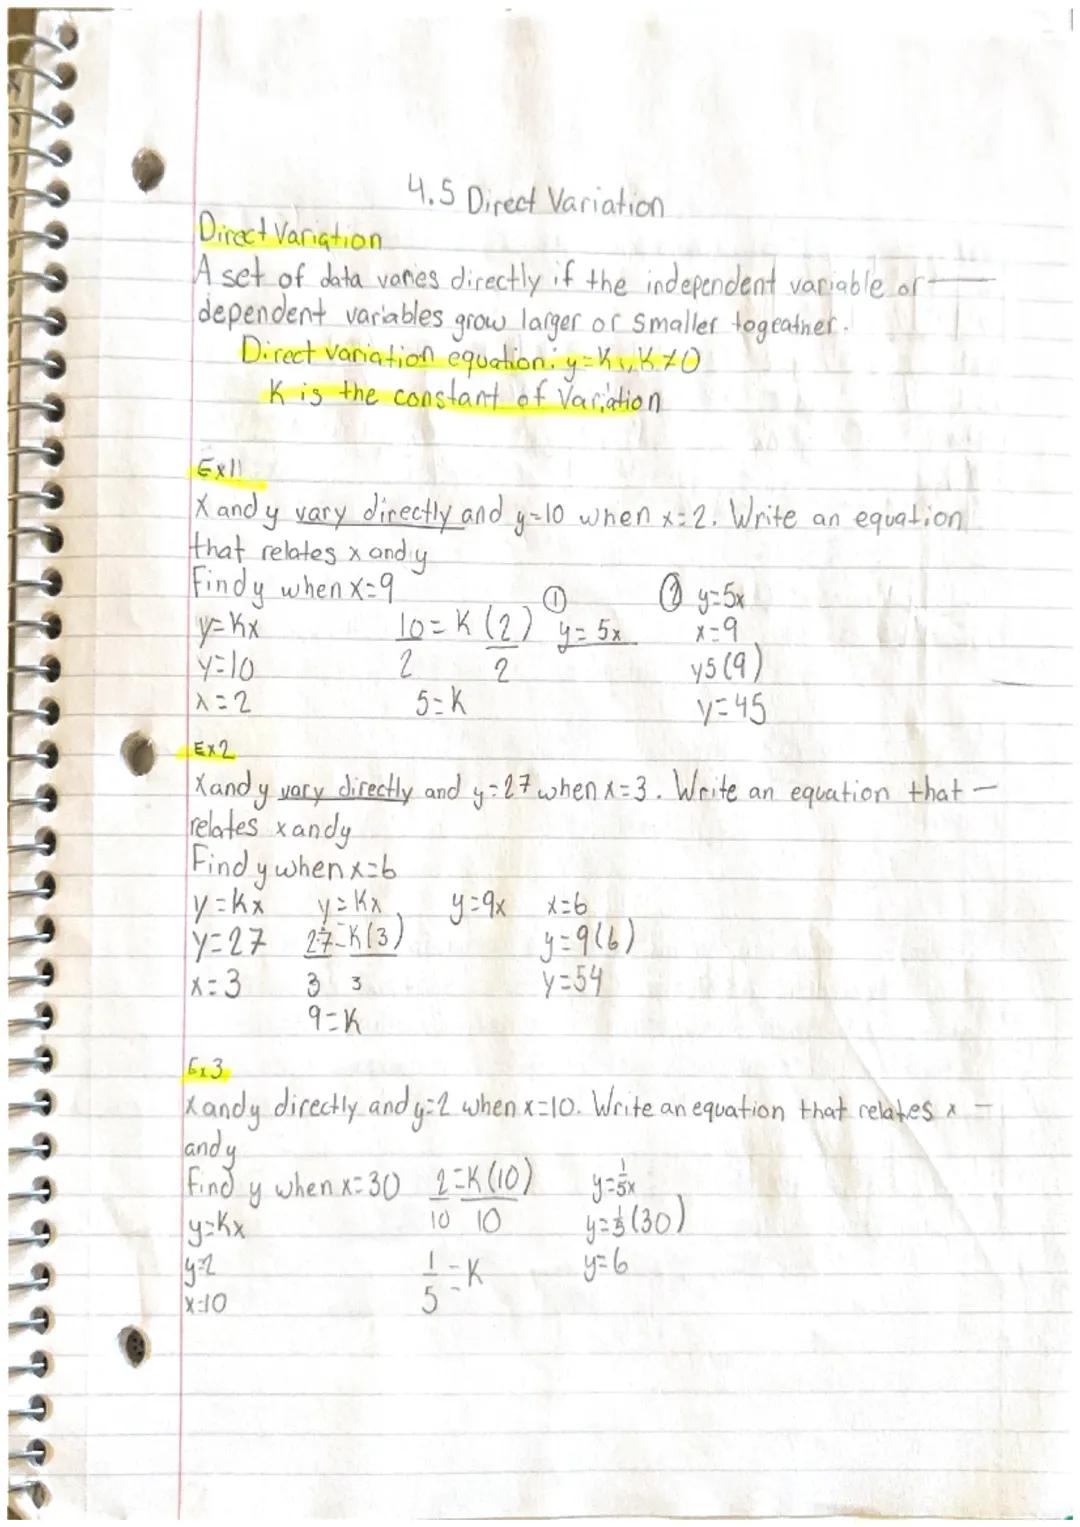 4.5 Direct Variation
Direct Variation
A set of data varies directly if the independent variable or
dependent variables grow larger or smaller togeather.
Direct variation equation: y=Kx, K≠0
K is the constant of Variation
Ex 1
X and y vary directly and y=10 when x=2. Write an equation
that relates x and y
Find y when x=9
① ② y=5x
y=Kx 10=K(2) y=5x x=9
y=10 2 2 y5(9)
x=2 5=K y=45
Ex2
X and y vary directly and y=27 when x=3. Write an equation that
relates x and y
Find y when x=6
y=Kx y=Kx y=9x x=6
y=27 27=K(3) y=9(6)
x=3 3 3 y=54
9=K
Ex3
X and y directly and y=2 when x=10. Write an equation that relates x
and y
find y when x=30 2=K(10) y=1/5x
y=Kx 10 10 y=1/5(30)
y=2 1/5=K y=6
x=10